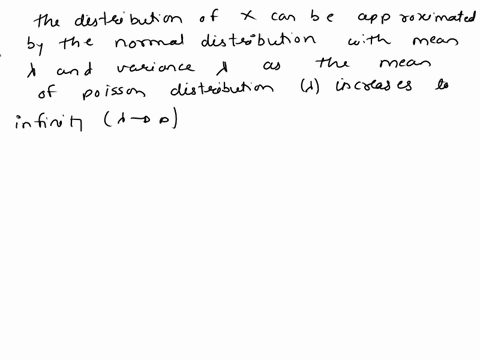 the distribution of x can be approximated
by the normal distribution with mean
λ and variance λ as the mean
of poisson distribution (λ) increases to
infinity (λ → ∞)